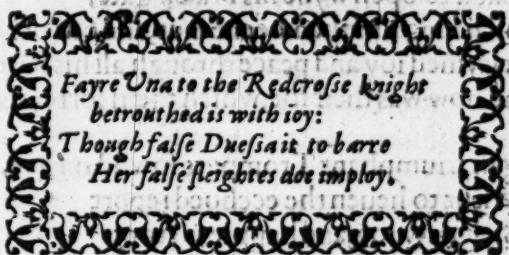 Fayre Vna to the Redcroſse knight
betrouthed is with ioy:
Though falſe Dueſsa it to barre
Her falſe ſleightes doe imploy.